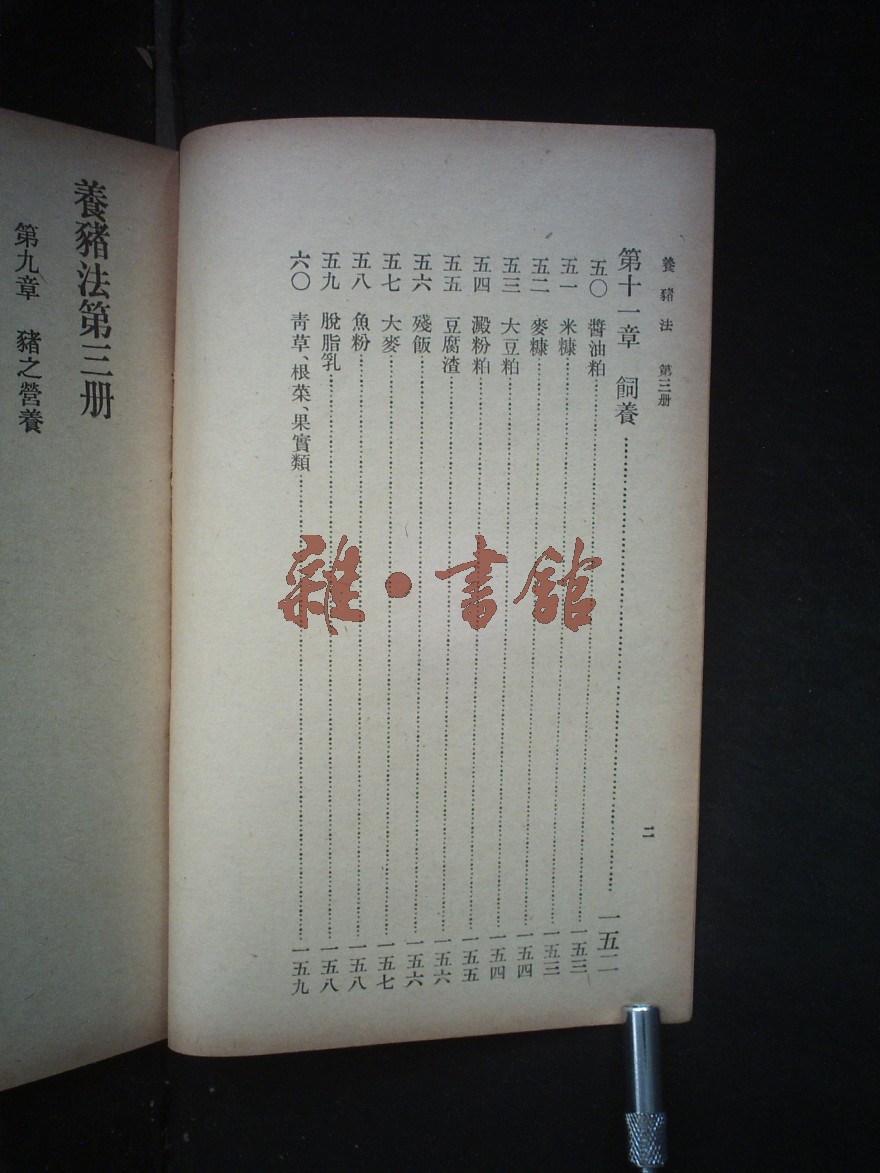 養豬法 第三册
二
第十一章 飼養 一五二
五〇 醬油粕 一五三
五一 米糠 一五三
五二 麥糠 一五四
五三 大豆粕 一五四
五四 澱粉粕 一五五
五五 豆腐渣 一五六
五六 殘飯 一五六
五七 大麥 一五七
五八 魚粉 一五八
五九 脫脂乳 一五八
六〇 靑草、根菜、果實類 一五九
養豬法第三册
第九章 豬之營養
雜·書館